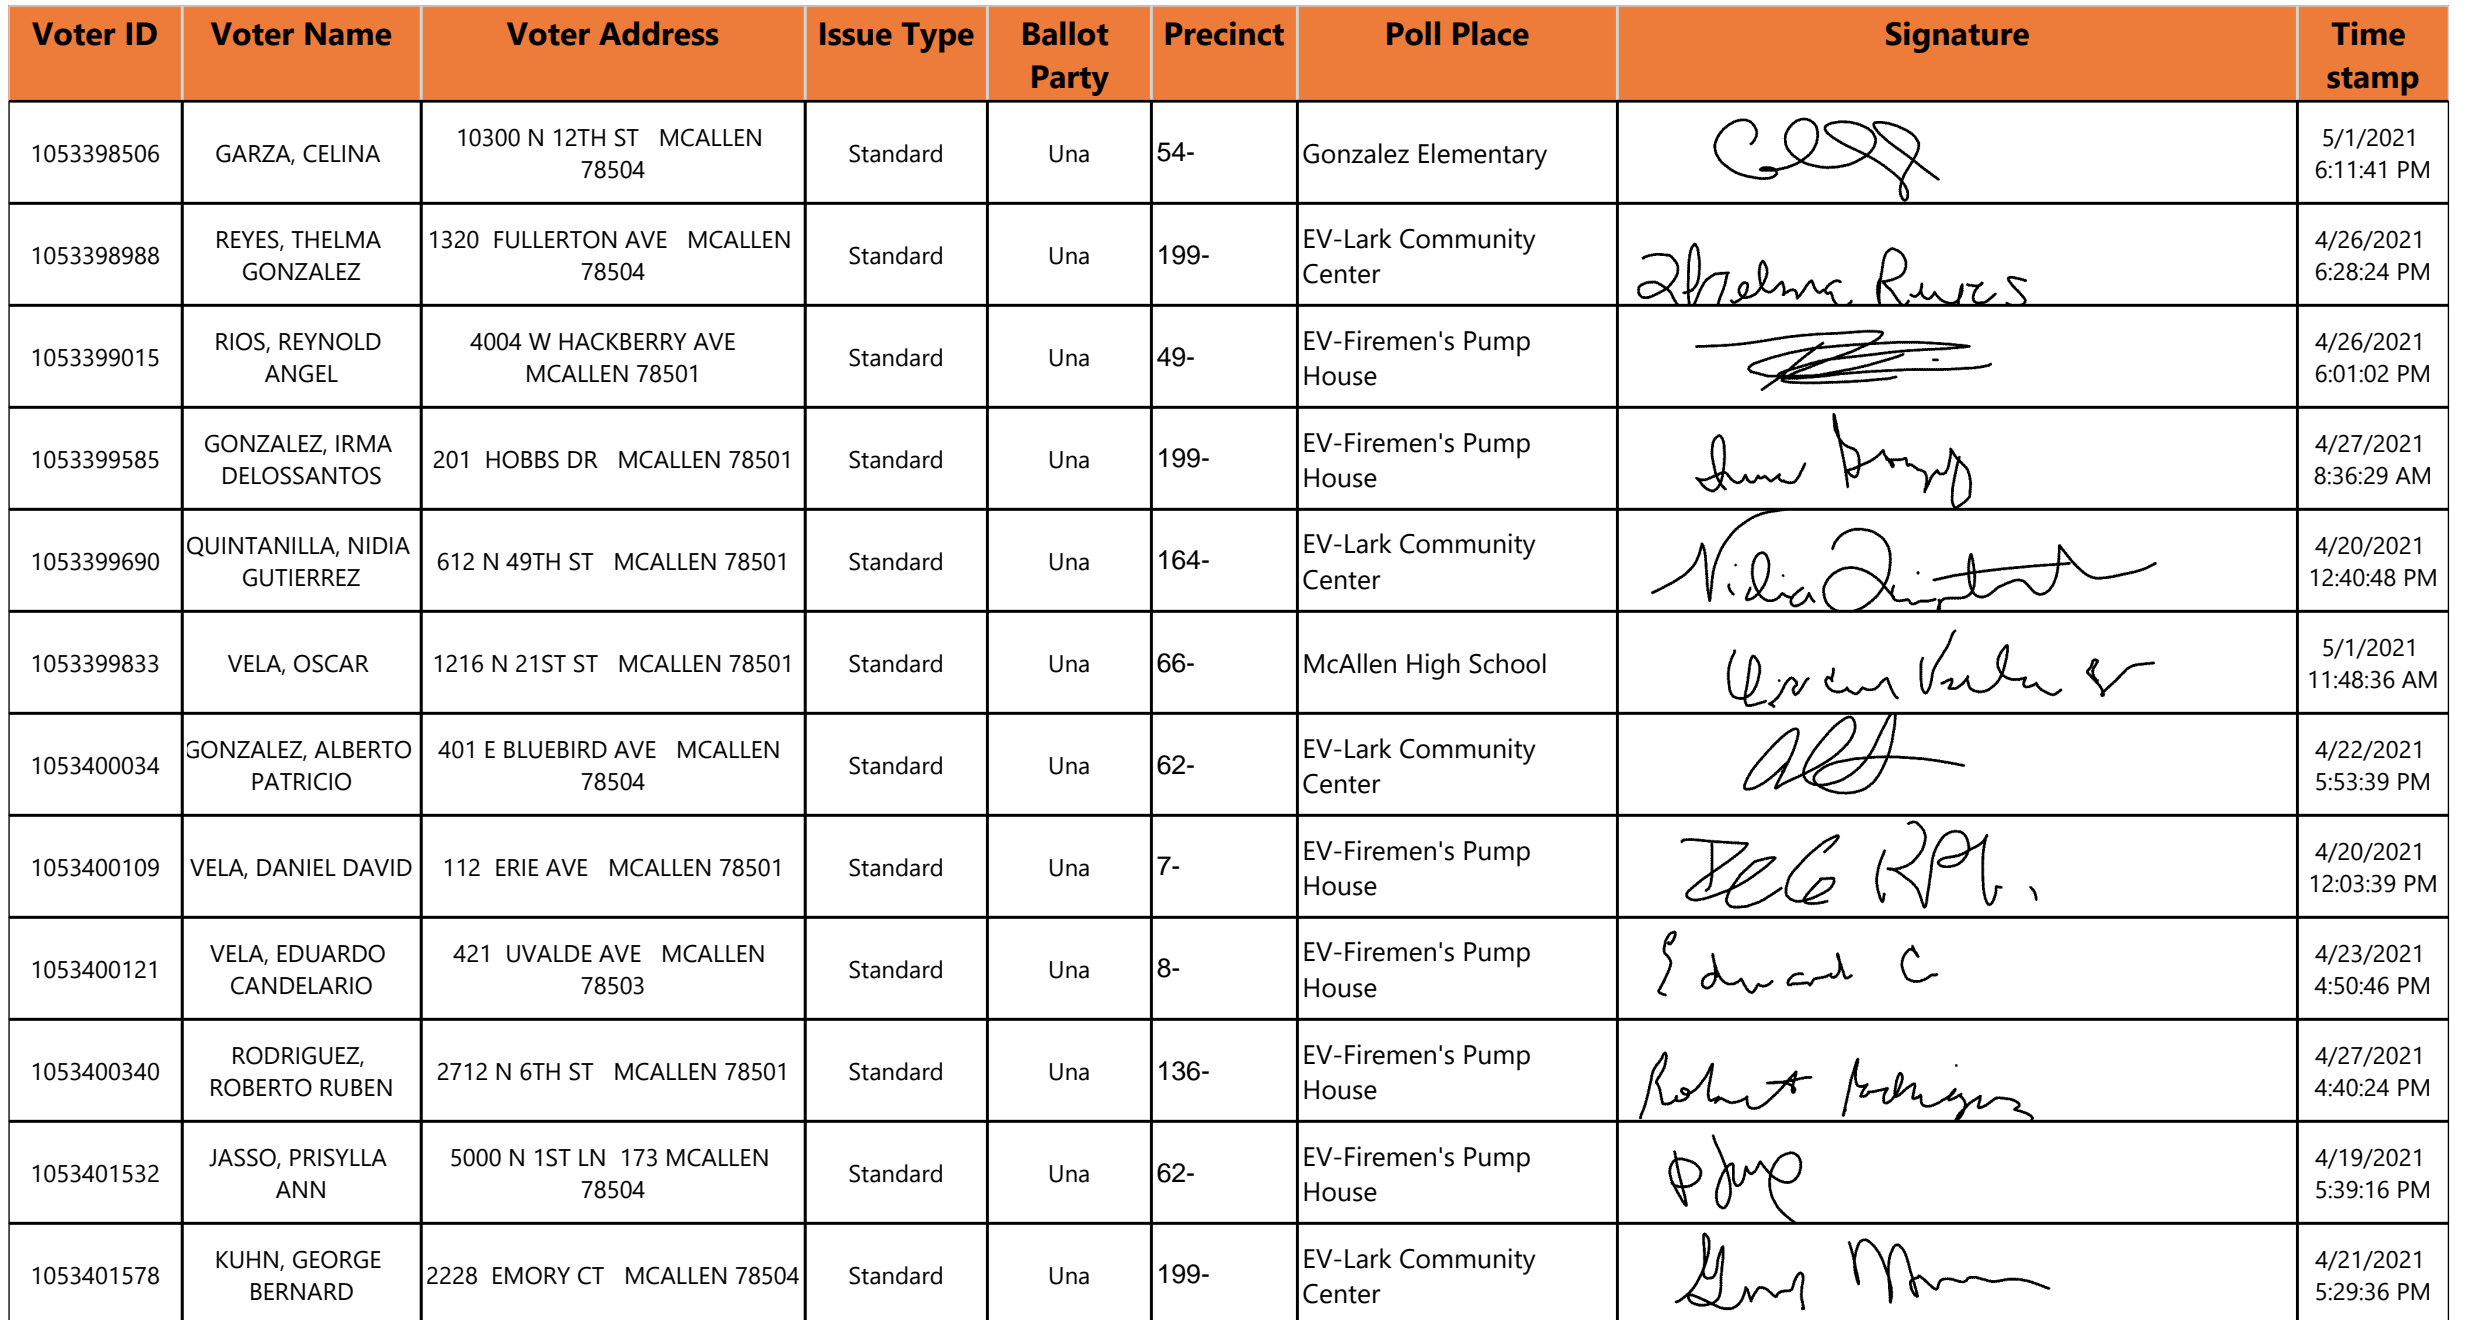 Voter ID Voter Name Voter Address Issue Type Ballot Party Precinct Poll Place Signature Time stamp
1053398506 GARZA, CELINA 10300 N 12TH ST MCALLEN 78504 Standard Una 54- Gonzalez Elementary 5/1/2021 6:11:41 PM
1053398988 REYES, THELMA GONZALEZ 1320 FULLERTON AVE MCALLEN 78504 Standard Una 199- EV-Lark Community Center Thelma Reyes 4/26/2021 6:28:24 PM
1053399015 RIOS, REYNOLD ANGEL 4004 W HACKBERRY AVE MCALLEN 78501 Standard Una 49- EV-Firemen's Pump House 4/26/2021 6:01:02 PM
1053399585 GONZALEZ, IRMA DELOSSANTOS 201 HOBBS DR MCALLEN 78501 Standard Una 199- EV-Firemen's Pump House 4/27/2021 8:36:29 AM
1053399690 QUINTANILLA, NIDIA GUTIERREZ 612 N 49TH ST MCALLEN 78501 Standard Una 164- EV-Lark Community Center Nidia 4/20/2021 12:40:48 PM
1053399833 VELA, OSCAR 1216 N 21ST ST MCALLEN 78501 Standard Una 66- McAllen High School Oscar Vela 5/1/2021 11:48:36 AM
1053400034 GONZALEZ, ALBERTO PATRICIO 401 E BLUEBIRD AVE MCALLEN 78504 Standard Una 62- EV-Lark Community Center 4/22/2021 5:53:39 PM
1053400109 VELA, DANIEL DAVID 112 ERIE AVE MCALLEN 78501 Standard Una 7- EV-Firemen's Pump House 4/20/2021 12:03:39 PM
1053400121 VELA, EDUARDO CANDELARIO 421 UVALDE AVE MCALLEN 78503 Standard Una 8- EV-Firemen's Pump House Eduard C 4/23/2021 4:50:46 PM
1053400340 RODRIGUEZ, ROBERTO RUBEN 2712 N 6TH ST MCALLEN 78501 Standard Una 136- EV-Firemen's Pump House Robert Rodriguez 4/27/2021 4:40:24 PM
1053401532 JASSO, PRISYLLA ANN 5000 N 1ST LN 173 MCALLEN 78504 Standard Una 62- EV-Firemen's Pump House 4/19/2021 5:39:16 PM
1053401578 KUHN, GEORGE BERNARD 2228 EMORY CT MCALLEN 78504 Standard Una 199- EV-Lark Community Center 4/21/2021 5:29:36 PM